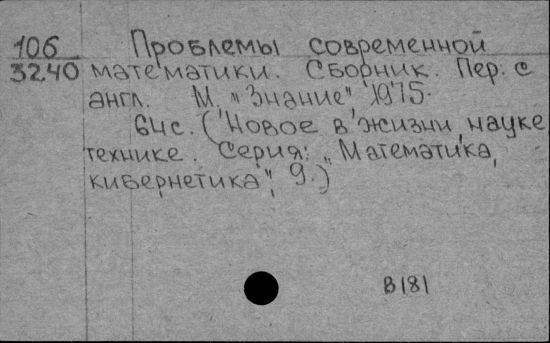 106 Проблемы современной
3240 математики. Сборник. Пер. с
англ. М. "Знание", 1975.
64с. (Новое в жизни, науке,
технике. Серия: "Математика,
кибернетика", 9.)
В181